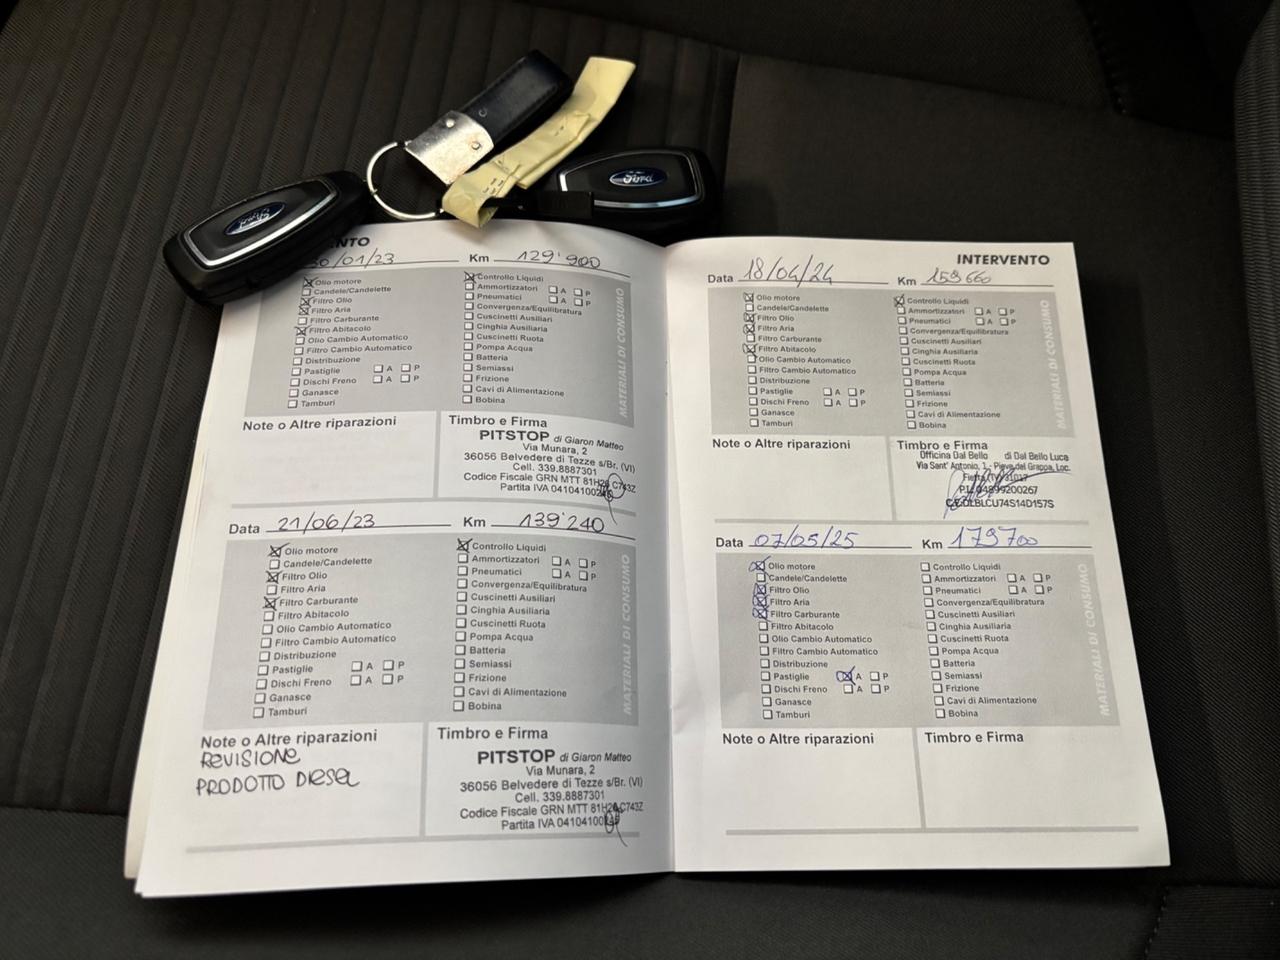 Ford
Ford
Data 30/01/23 Km 129'900
Olio motore
Candele/Candelette
Filtro Olio
Filtro Aria
Filtro Carburante
Filtro Abitacolo
Olio Cambio Automatico
Filtro Cambio Automatico
Distribuzione
Pastiglie A P
Dischi Freno A P
Ganasce
Tamburi
Controllo Liquidi
Ammortizzatori A P
Pneumatici A P
Convergenza/Equilibratura
Cuscinetti Ausiliari
Cinghia Ausiliaria
Cuscinetti Ruota
Pompa Acqua
Batteria
Semiassi
Frizione
Cavi di Alimentazione
Bobina
MATERIALI DI CONSUMO
Note o Altre riparazioni
Timbro e Firma
PITSTOP di Giaron Matteo
Via Munara, 2
36056 Belvedere di Tezze s/Br. (VI)
Cell. 339.8887301
Codice Fiscale GRN MTT 81H24 C743Z
Partita IVA 04104100
Data 21/06/23 Km 139'240
Olio motore
Candele/Candelette
Filtro Olio
Filtro Aria
Filtro Carburante
Filtro Abitacolo
Olio Cambio Automatico
Filtro Cambio Automatico
Distribuzione
Pastiglie A P
Dischi Freno A P
Ganasce
Tamburi
Controllo Liquidi
Ammortizzatori A P
Pneumatici A P
Convergenza/Equilibratura
Cuscinetti Ausiliari
Cinghia Ausiliaria
Cuscinetti Ruota
Pompa Acqua
Batteria
Semiassi
Frizione
Cavi di Alimentazione
Bobina
MATERIALI DI CONSUMO
Note o Altre riparazioni
REVISIONE
PRODOTTO DIESEL
Timbro e Firma
PITSTOP di Giaron Matteo
Via Munara, 2
36056 Belvedere di Tezze s/Br. (VI)
Cell. 339.8887301
Codice Fiscale GRN MTT 81H24 C743Z
Partita IVA 04104100
INTERVENTO
Data 18/04/24 Km 159660
Olio motore
Candele/Candelette
Filtro Olio
Filtro Aria
Filtro Carburante
Filtro Abitacolo
Olio Cambio Automatico
Filtro Cambio Automatico
Distribuzione
Pastiglie A P
Dischi Freno A P
Ganasce
Tamburi
Controllo Liquidi
Ammortizzatori A P
Pneumatici A P
Convergenza/Equilibratura
Cuscinetti Ausiliari
Cinghia Ausiliaria
Cuscinetti Ruota
Pompa Acqua
Batteria
Semiassi
Frizione
Cavi di Alimentazione
Bobina
MATERIALI DI CONSUMO
Note o Altre riparazioni
Timbro e Firma
Officina Dal Bello di Dal Bello Luca
Via Sant' Antonio, 1 - Pieve del Grappa, Loc.
31017
P.I. 04899200267
DLBLCU74S14D157S
Data 07/05/25 Km 179700
Olio motore
Candele/Candelette
Filtro Olio
Filtro Aria
Filtro Carburante
Filtro Abitacolo
Olio Cambio Automatico
Filtro Cambio Automatico
Distribuzione
Pastiglie A P
Dischi Freno A P
Ganasce
Tamburi
Controllo Liquidi
Ammortizzatori A P
Pneumatici A P
Convergenza/Equilibratura
Cuscinetti Ausiliari
Cinghia Ausiliaria
Cuscinetti Ruota
Pompa Acqua
Batteria
Semiassi
Frizione
Cavi di Alimentazione
Bobina
MATERIALI DI CONSUMO
Note o Altre riparazioni
Timbro e Firma